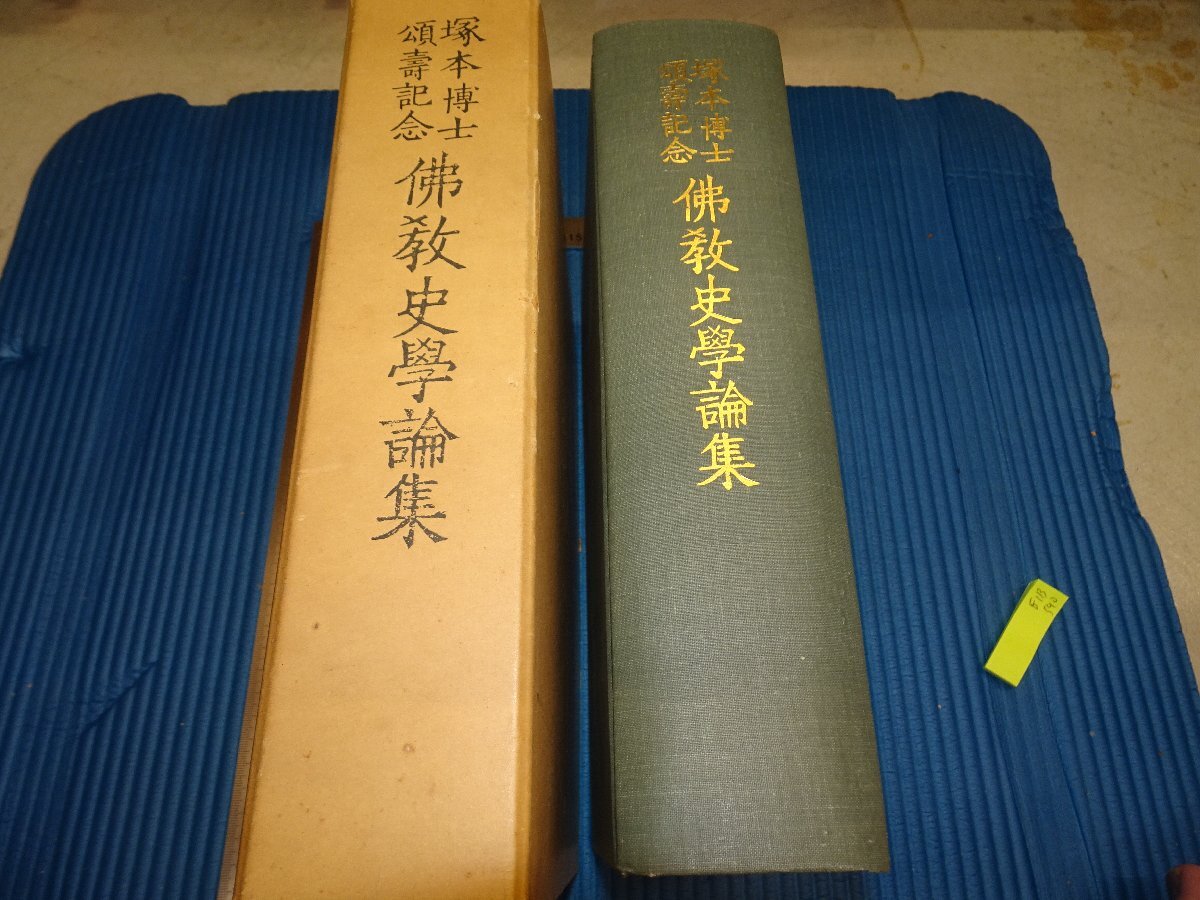 塚本博士
頌壽記念
佛教史學論集
塚本博士
頌壽記念
佛教史學論集